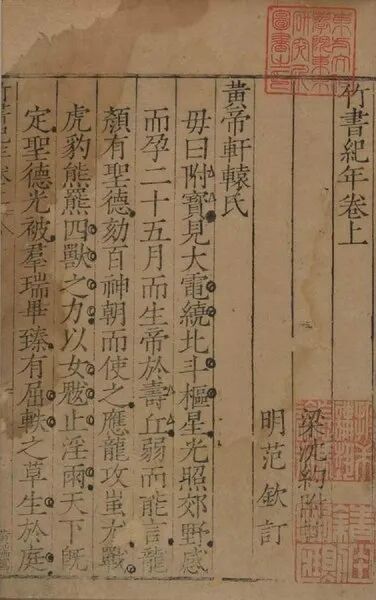 東方文化
學院東京
研究所
圖書之印
竹書紀年卷上
梁沈約附
明范欽訂
黃帝軒轅氏
毋曰附寶見大電繞北斗樞星光照郊野感
而孕二十五月而生帝於壽丘弱而能言龍
顏有聖德劾百神朝而使之應龍攻蚩尤戰
虎豹熊羆四獸之力以女魃止淫雨天下既
定聖德光被羣瑞畢臻有屈軼之草生於庭